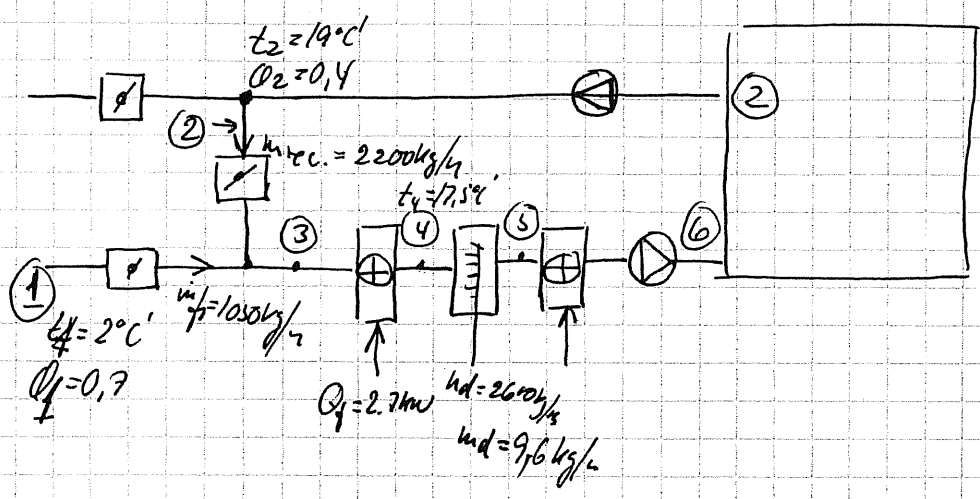 t₂=19°C
φ₂=0,4
②
②
ṁrec.=2200kg/h
t₄=17,5°C
③
④
⑤
⑥
①
ṁf=1050kg/h
t₁=2°C
φ₁=0,7
Q₁=2.7kW
hd=2680kJ/kg
md=9,6kg/h